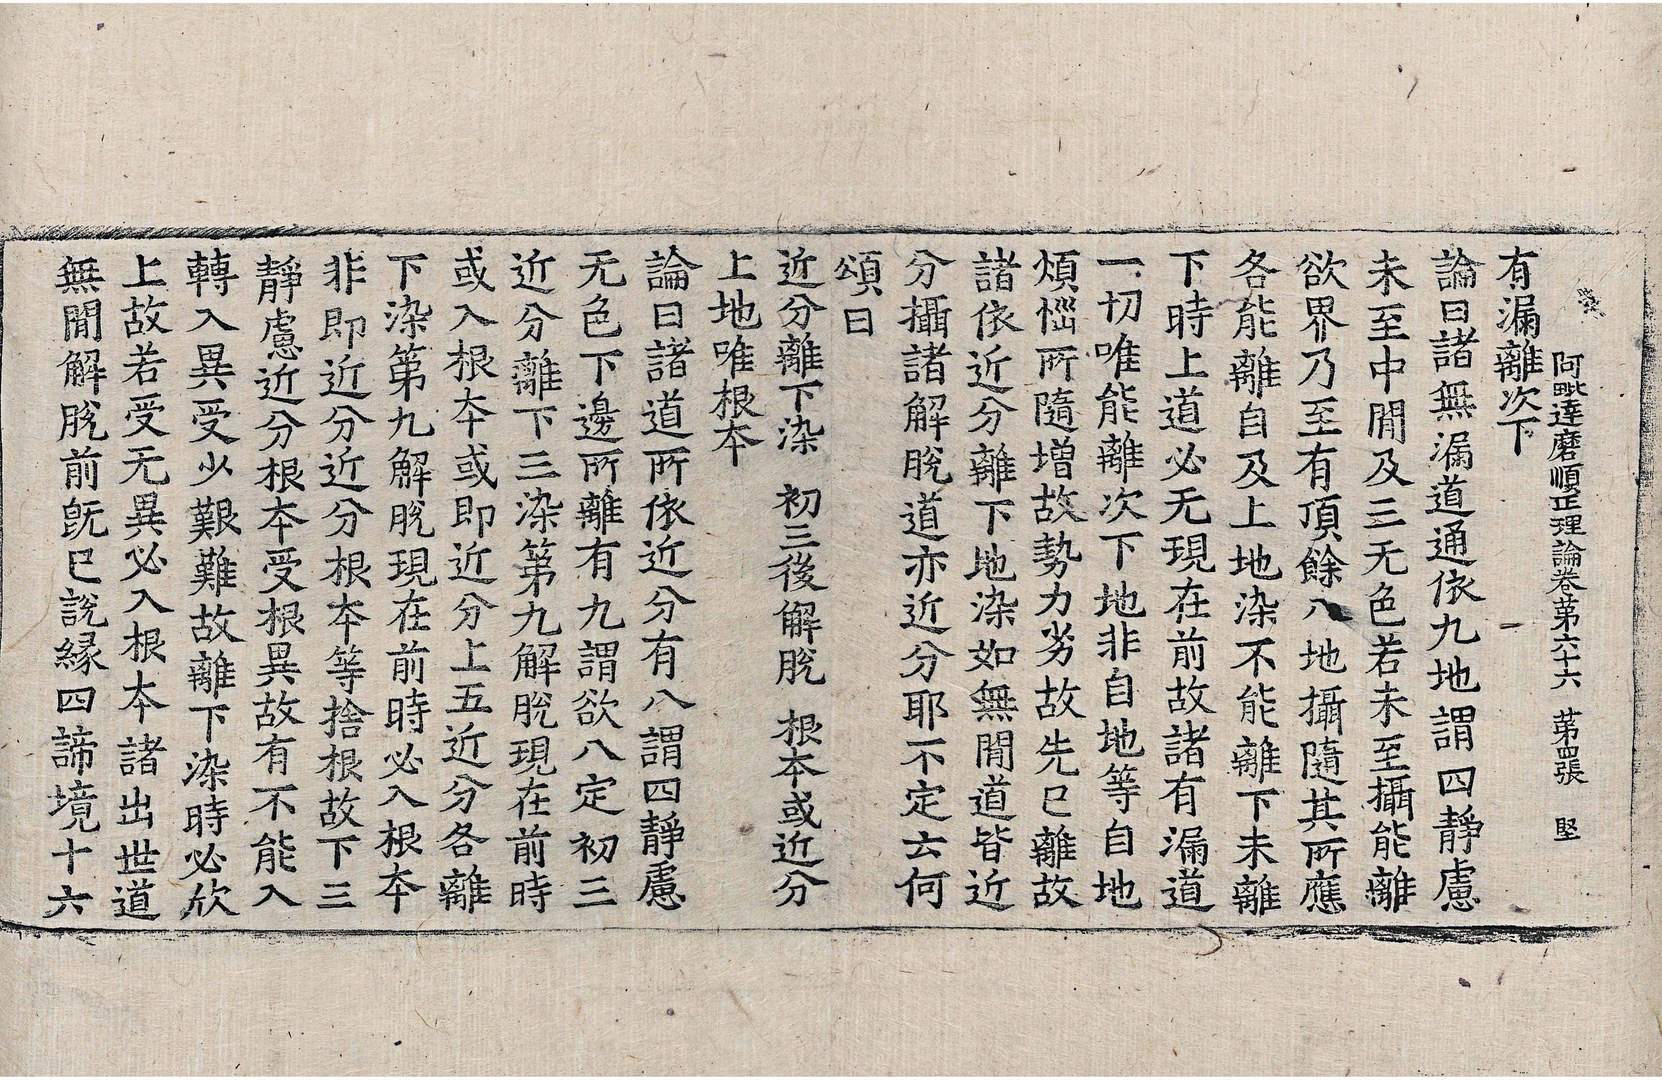 阿毗達磨順正理論卷第六十六 第四張 堅
有漏離次下
論曰諸無漏道通依九地謂四靜慮
未至中間及三无色若未至攝能離
欲界乃至有頂餘八地攝隨其所應
各能離自及上地染不能離下未離
下時上道必无現在前故諸有漏道
一切唯能離次下地非自地等自地
煩惱所隨增故勢力劣故先已離故
諸依近分離下地染如無間道皆近
分攝諸解脫道亦近分耶不定云何
頌曰
近分離下染 初三後解脫 根本或近分
上地唯根本
論曰諸道所依近分有八謂四靜慮
无色下邊所離有九謂欲八定初三
近分離下三染第九解脫現在前時
或入根本或即近分上五近分各離
下染第九解脫現在前時必入根本
非即近分近分根本等捨根故下三
靜慮近分根本受根異故有不能入
轉入異受少艱難故離下染時必欣
上故若受无異必入根本諸出世道
無間解脫前旣已說緣四諦境十六